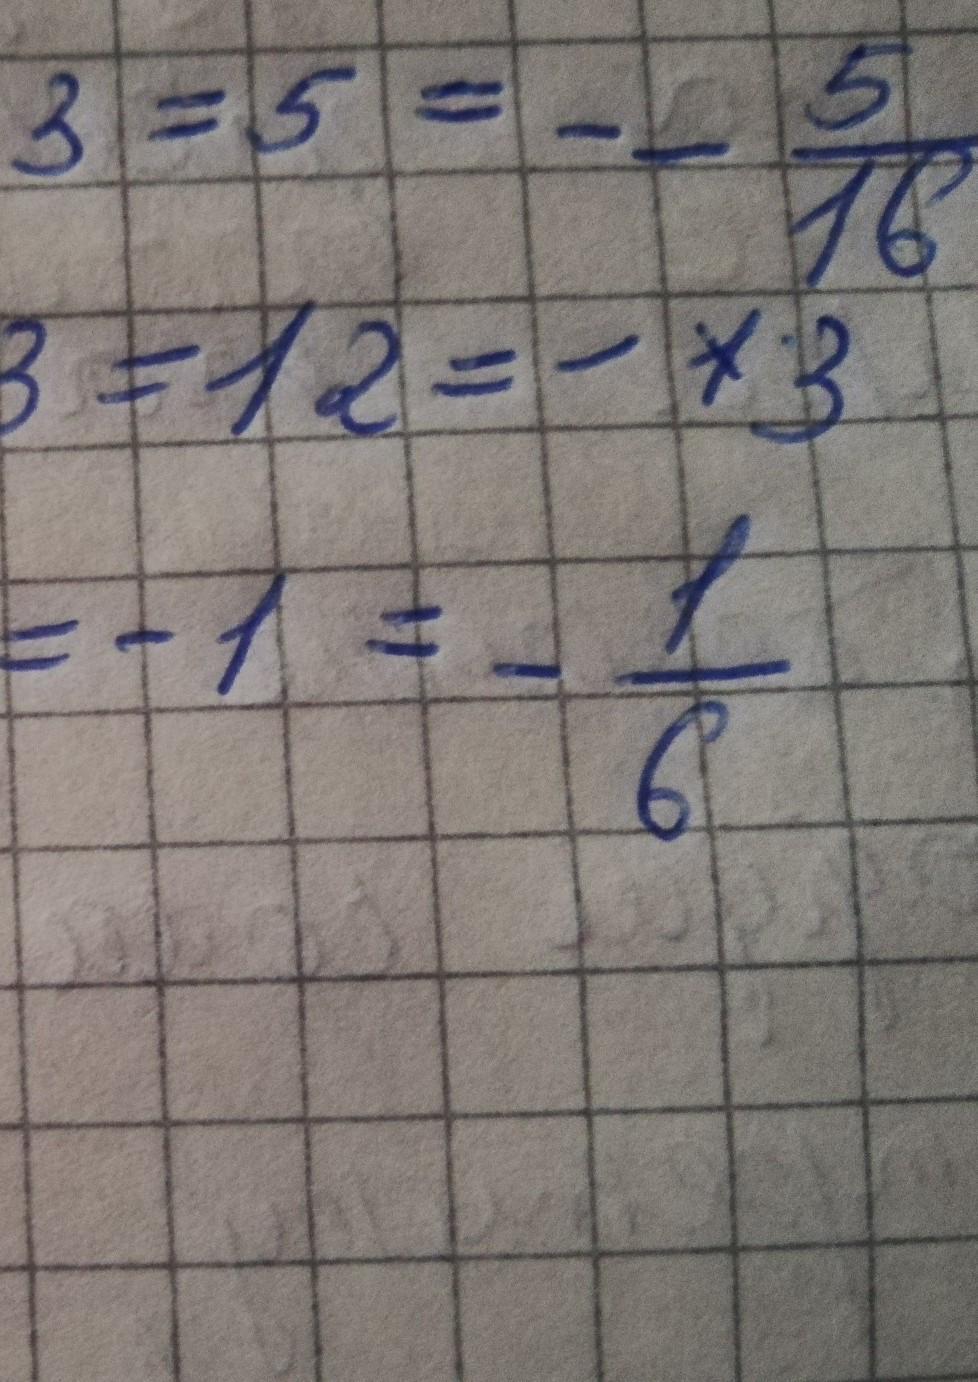 3 = 5 = - - 5/16
3 = 12 = - x 3
= - 1 = - 1/6